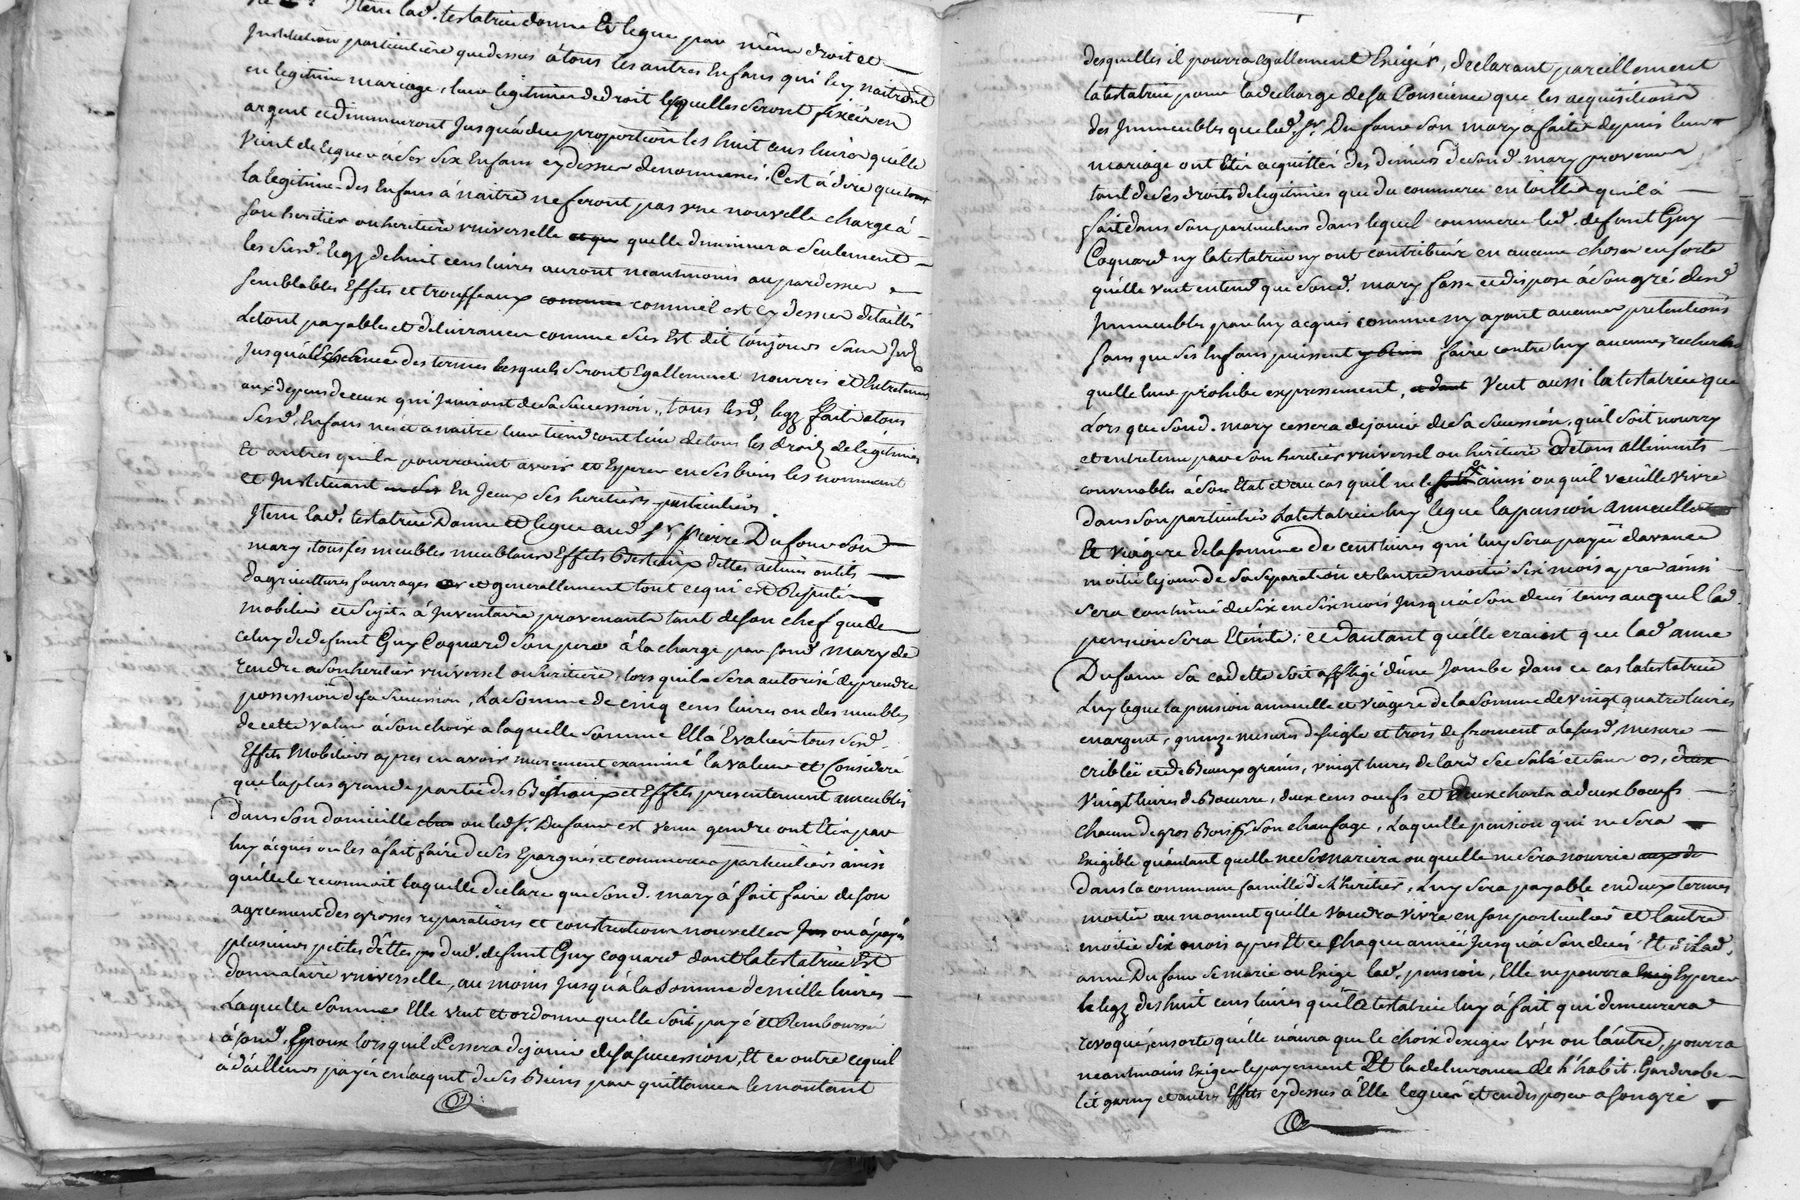 Item lad. testatrice donne Et legue par même droit et
Institution particuliere que dessus à tous les autres Enfans qui luy naitront
en legitime mariage, leur legitime de droit lesquelles seront fixées en
argent et diminueront jusqu'à due proportion les huit cens livres qu'elle
vient de leguer à ses six Enfans cy dessus denommés. C'est à dire que
la legitime des Enfans à naitre ne feront pas une nouvelle charge à
son heritier ou heritiere universelle quelle diminuera seulement
les susd. legz de huit cens livres auront neantmoins au par dessus
semblables Effets et trousseaux comme il est cy dessus detaillé
Le tout payables et delivrances comme sus Est dit toujours sans
jusqu'à des termes lesquels seront Egallement nourris et Entretenus
aux depens de ceux qui jouiront de sa succession, tous lesd. legz fait a tous
sesd. Enfans nés et a naitre leur tiendront lieu de tous les droitz de legitimes
Et autres quils pourroient avoir et Esperer en ses biens les nommant
et Instituant En Iceux ses heritiers particuliers.
Item lad. testatrice Donne et legue aud. Sr. pierre Dufour son
mary tous ses meubles meublans Effets Bestiaux dettes actives outils
dagricultures fourrages et generallement tout ce qui est Reputé
mobilier et sujet à Inventaire provenants tant de son chef que de
celuy de defunt Guy Coquard son pere à la charge par sond. mary de
rendre a son heritier universel ou heritiere, lors quil sera autorisé de prendre
possession de sa succession, La somme de cinq cens livres ou des meubles
de cette valeur à son choix a laquelle somme Ella Evalué tous sesd.
Effets Mobiliers apres en avoir murement examiné la valeur et Consideré
que la plus grande partie des Bestiaux et Effets presentement ameublés
dans son domicille ou led. Sr. Dufour est venu gendre ont Etés par
luy acquis ou les à fait faire de ses Epargnes et commerces particuliers ainsi
qu'elle le reconnoit laquelle declare que sond. mary à fait faire de son
agrement des grosses reparations et constructions nouvelles ou à payé
plusieurs petites dettes dud. defunt Guy coquard dont la testatrice Est
donnataire universelle, au moins jusqu'à la somme de mille livres
Laquelle somme Elle veut et ordonne quelle soit payé et Remboursé
à sond. Epoux lorsquil Cessera de jouir de sa succession, Et ce outre ce quil
à d'ailleurs payé en acquit de ses Biens par quittances le montant
desquelles il pourra egallement Exiger, declarant pareillement
la testatrice pour la decharge de sa Conscience que les acquisitions
des Immeubles que led. Sr. Dufour son mary a faites depuis leur
mariage ont Etés acquittés des deniers de sond. mary provenus
tant de ses droits de legitimes que du commerce en toilles quil à
fait dans son particulier dans lequel commerce led. defunt Guy
Coquard ny la testatrice ny ont contribués en aucune choses en sorte
qu'elle veut entend que sond. mary fasse et dispose à son gré desd.
Immeubles par luy acquis comme ny ayant aucunes pretentions
sans que ses Enfans puissent faire contre luy aucunes recherches
quelle leur prohibe expressement, Veut aussi la testatrice que
Lors que sond. mary cessera de jouir de sa succession, quil soit nourry
et entretenu par son heritier universel ou heritiere de tous alliments
convenables à son Etat et au cas quil ne le soit ainsi ou quil veuille vivre
dans son particulier La testatrice luy legue la pension annuelle
Et viagere de la somme de cent livres qui luy sera payée d'avance
moitié le jour de sa separation et lautre moitié six mois apres ainsi
sera continué de six en six mois jusqu'à son deces tems auquel lad.
pension sera Eteinte; et dautant qu'elle craient que lad. anne
Dufour sa cadette soit affligé d'une Jambe dans ce cas la testatrice
Luy legue la pension annuelle et viagere de la somme de vingt quatre livres
en argent, quinze mesures de seigle et trois de froment a la susd. mesure
criblée et de Beaux grains, vingt livres de lard sec salé et sans os,
vingt livres de Beurre, deux cens oeufs et deux chards a deux boeufs
chacun de gros Bois pr. son chaufage, Laquelle pension qui ne sera
Exigible qu'autant quelle ne se mariera ou quelle ne sera nourrie
dans la commune famille de l'heritier, Luy sera payable en deux termes
moitié au moment qu'elle voudra vivre en son particulier et lautre
moitié six mois apres Et ce Chaque année jusqu'à son deces. Et si Lad.
anne Dufour se marie ou Exige lad. pension, Elle ne pourra Esperer
le legz des huit cens livres que la testatrice luy à fait qui demeurera
revoqué, ensorte qu'elle n'aura que le choix d'exiger l'un ou l'autre, pourra
neantmoins Exiger le payement Et la delivrance de l'habit, Garderobe
lit garny et autres Effets cy dessus à Elle legués et en disposer a son gré